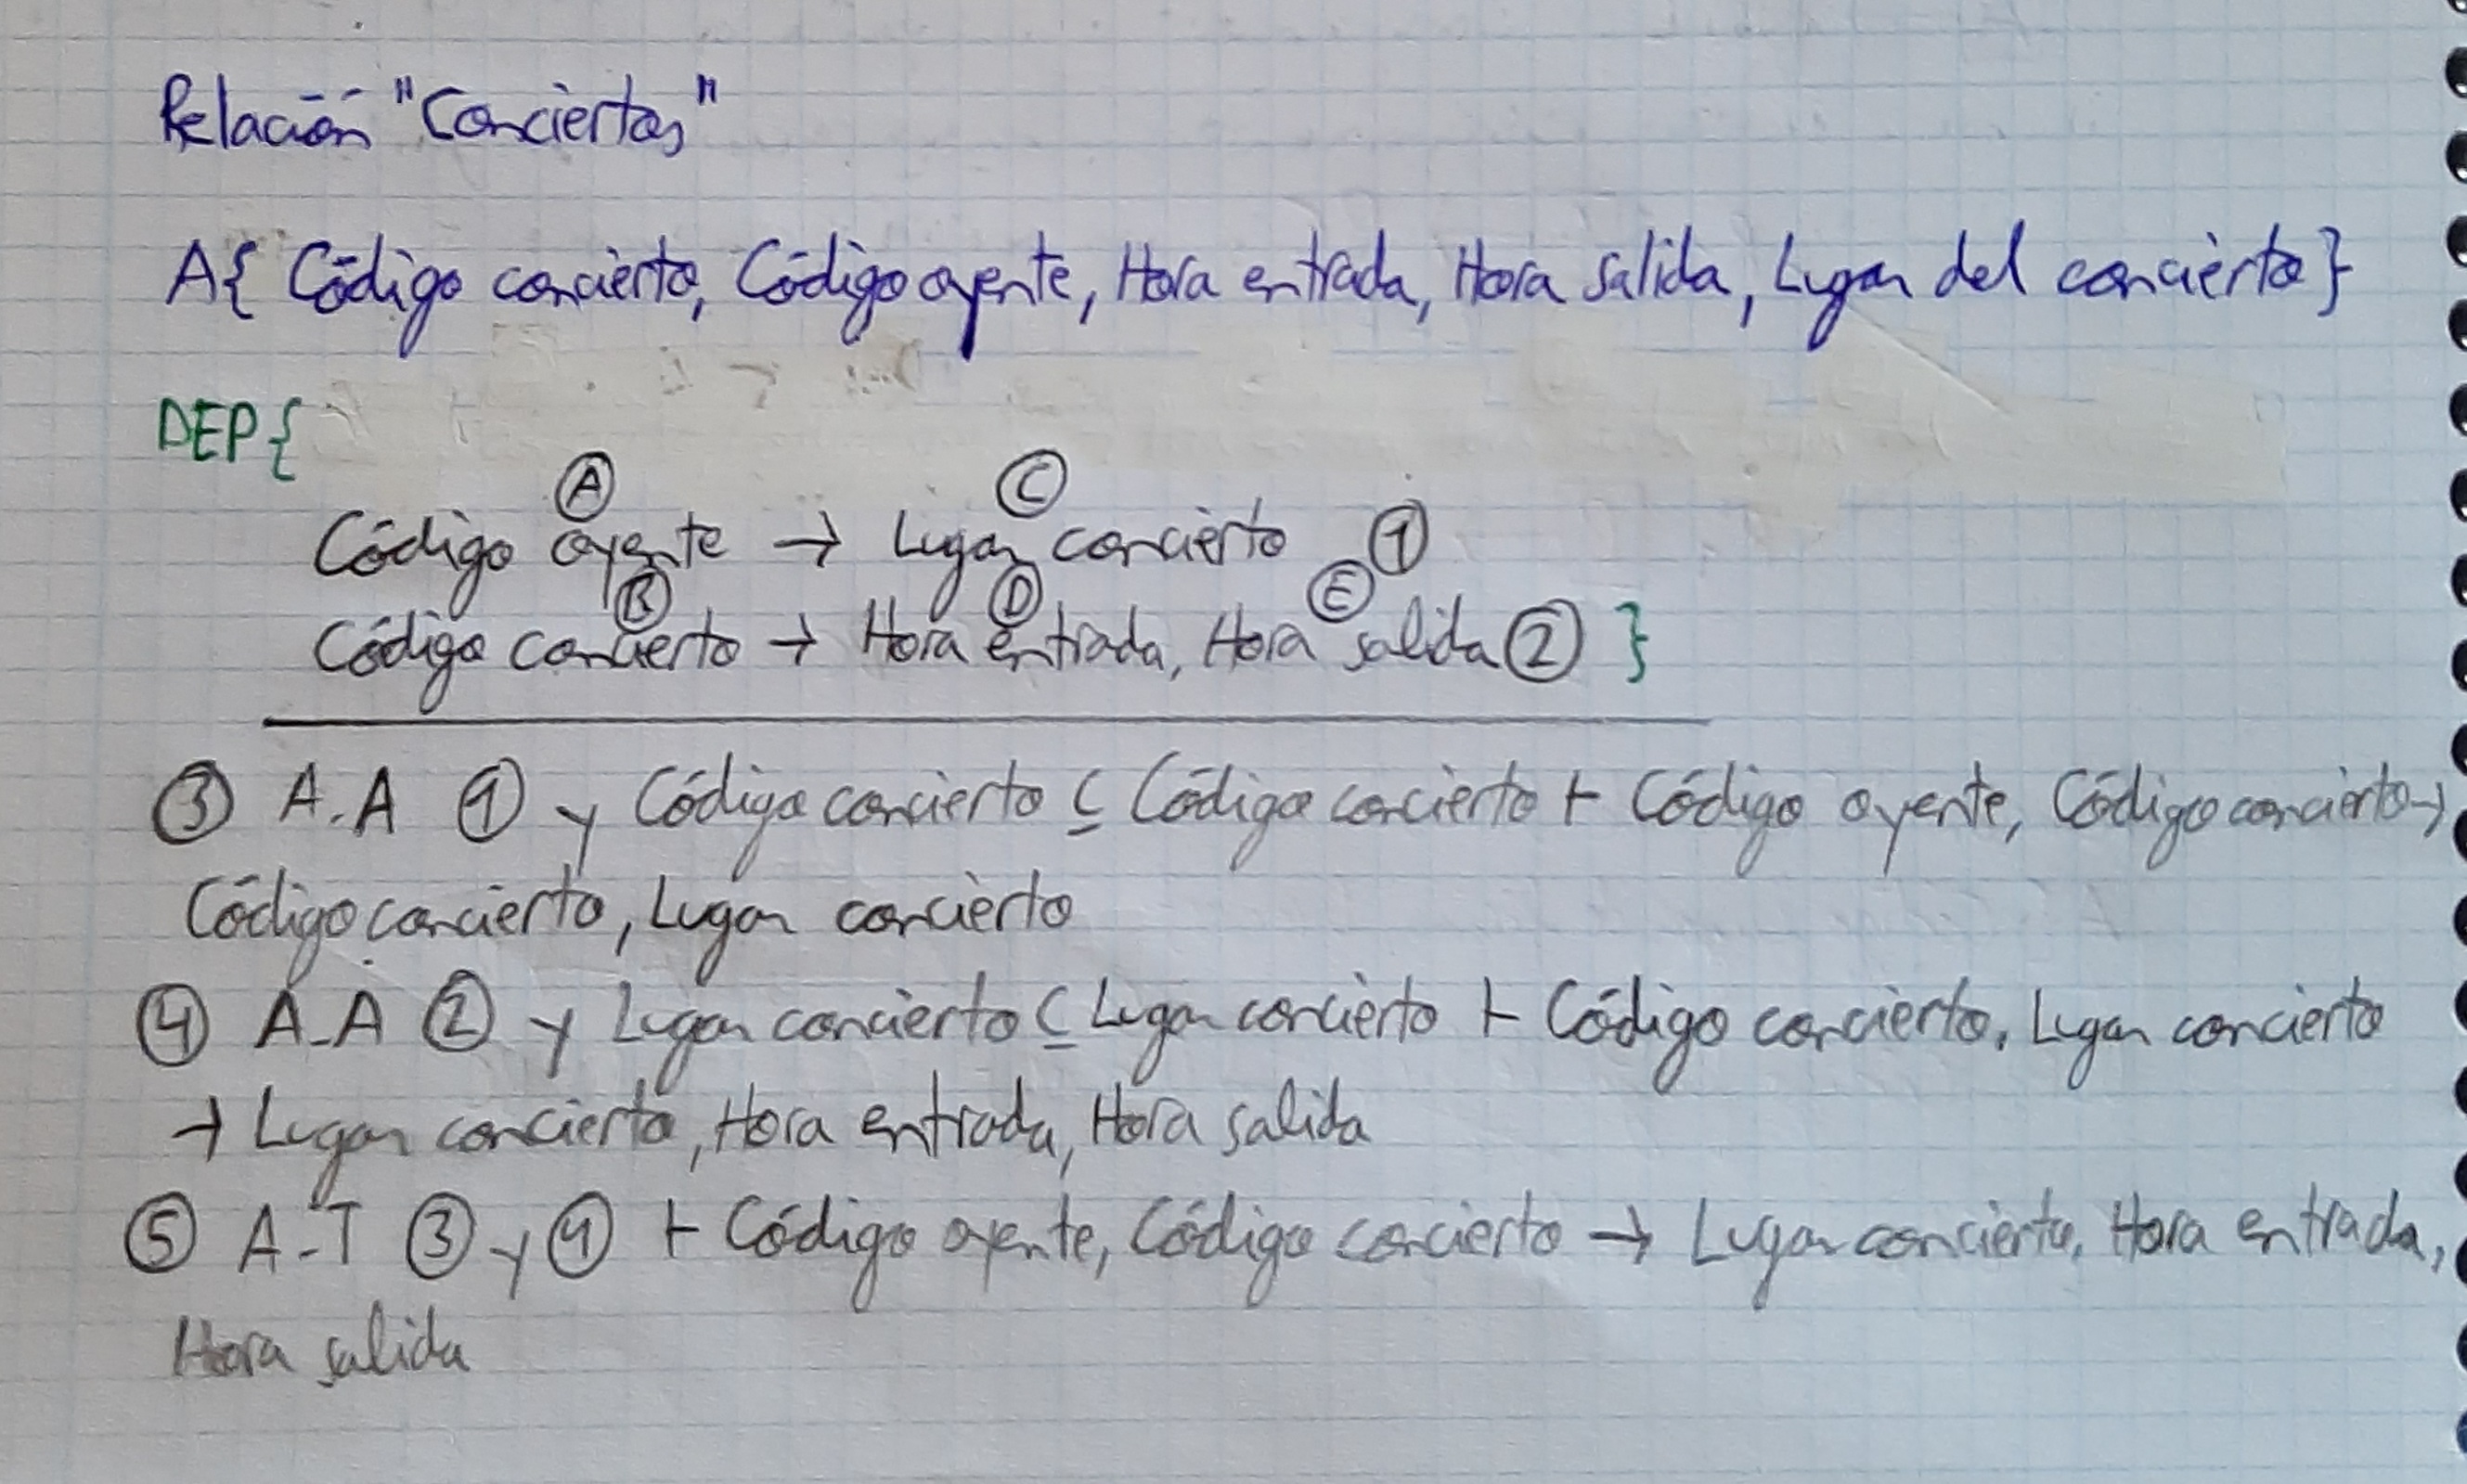 Relación "Conciertos"
A{ Código concierto, Código oyente, Hora entrada, Hora salida, Lugar del concierto}
DEP{
Ⓐ Ⓒ
Código oyente → Lugar concierto ①
Ⓑ Ⓓ Ⓔ
Código concierto → Hora entrada, Hora salida ② }
③ A.A ① y Código concierto ⊆ Código concierto ⊢ Código oyente, Código concierto →
Código concierto, Lugar concierto
④ A.A ② y Lugar concierto ⊆ Lugar concierto ⊢ Código concierto, Lugar concierto
→ Lugar concierto, Hora entrada, Hora salida
⑤ A.T ③ y ④ ⊢ Código oyente, Código concierto → Lugar concierto, Hora entrada,
Hora salida